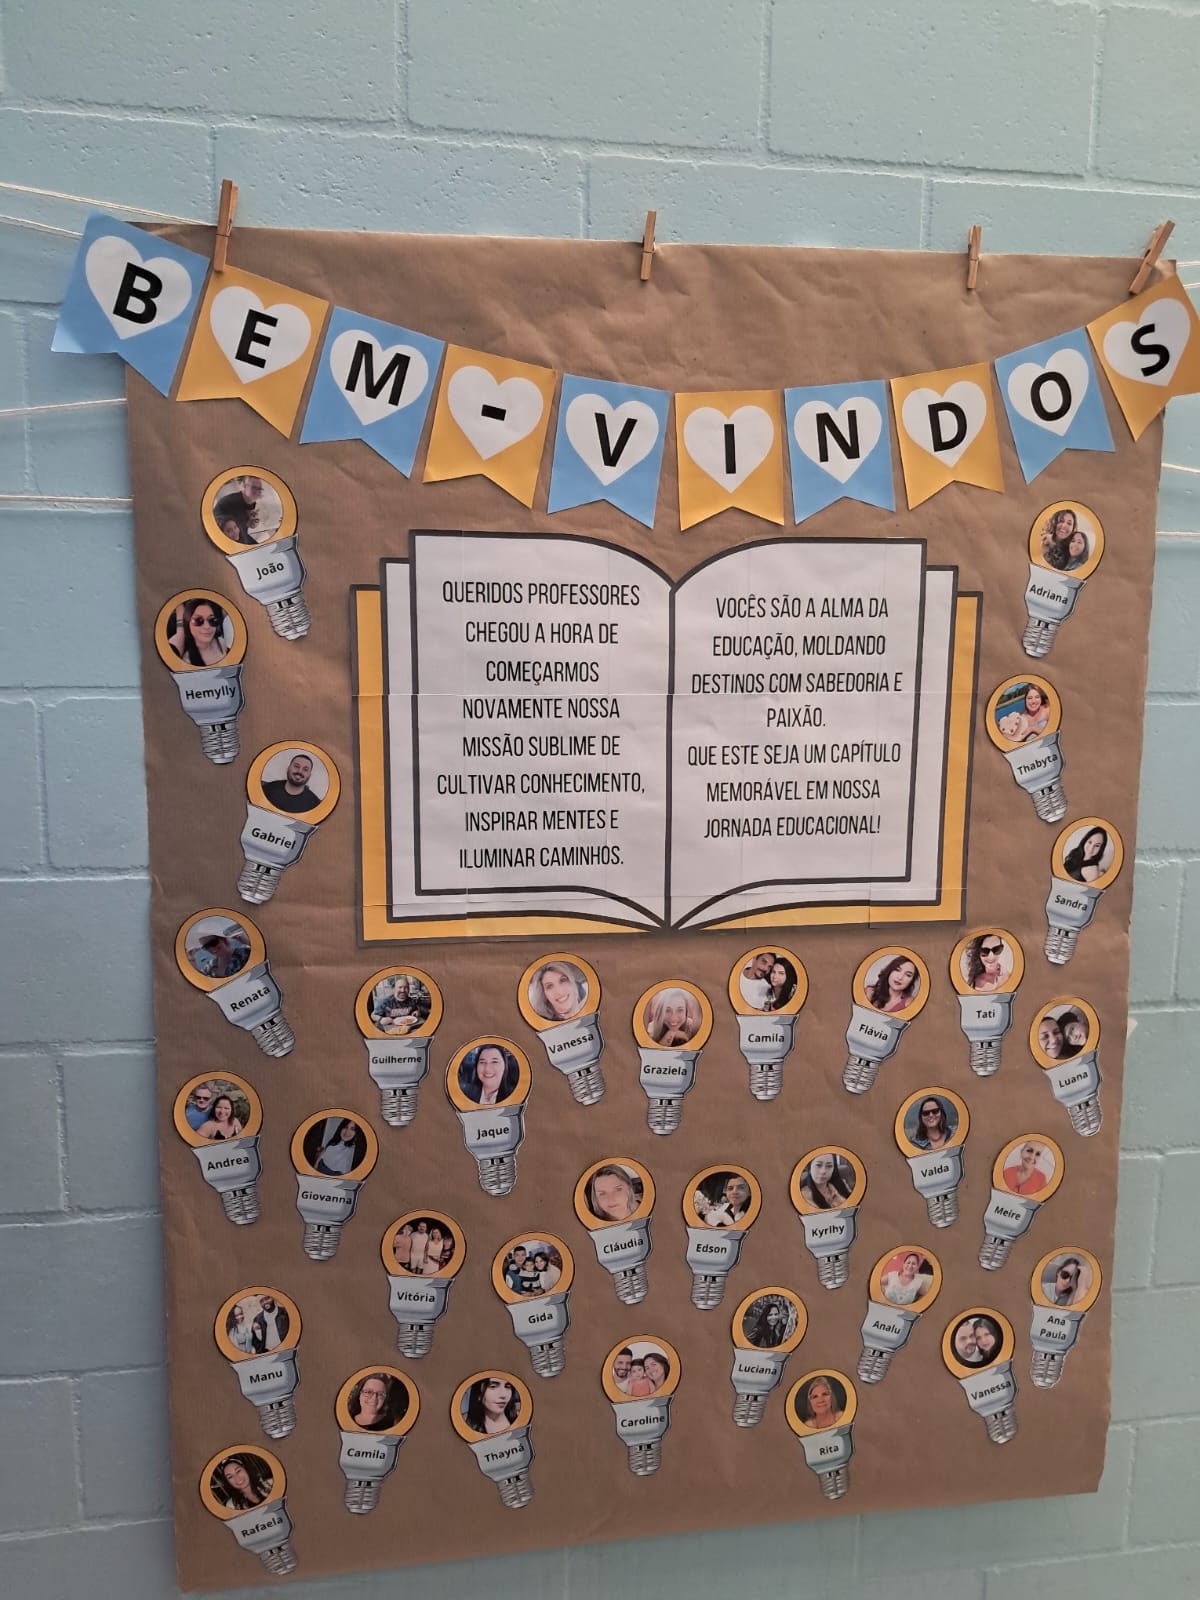 BEM-VINDOS
QUERIDOS PROFESSORES
CHEGOU A HORA DE
COMEÇARMOS
NOVAMENTE NOSSA
MISSÃO SUBLIME DE
CULTIVAR CONHECIMENTO,
INSPIRAR MENTES E
ILUMINAR CAMINHOS.
VOCÊS SÃO A ALMA DA
EDUCAÇÃO, MOLDANDO
DESTINOS COM SABEDORIA E
PAIXÃO.
QUE ESTE SEJA UM CAPÍTULO
MEMORÁVEL EM NOSSA
JORNADA EDUCACIONAL!
João
Adriana
Hemylly
Thabyta
Gabriel
Sandra
Renata
Guilherme
Jaque
Vanessa
Graziela
Camila
Flávia
Tati
Luana
Andrea
Giovanna
Vitória
Gida
Cláudia
Edson
Kyrlhy
Valda
Meire
Manu
Camila
Thayná
Caroline
Luciana
Rita
Analu
Vanessa
Ana
Paula
Rafaela